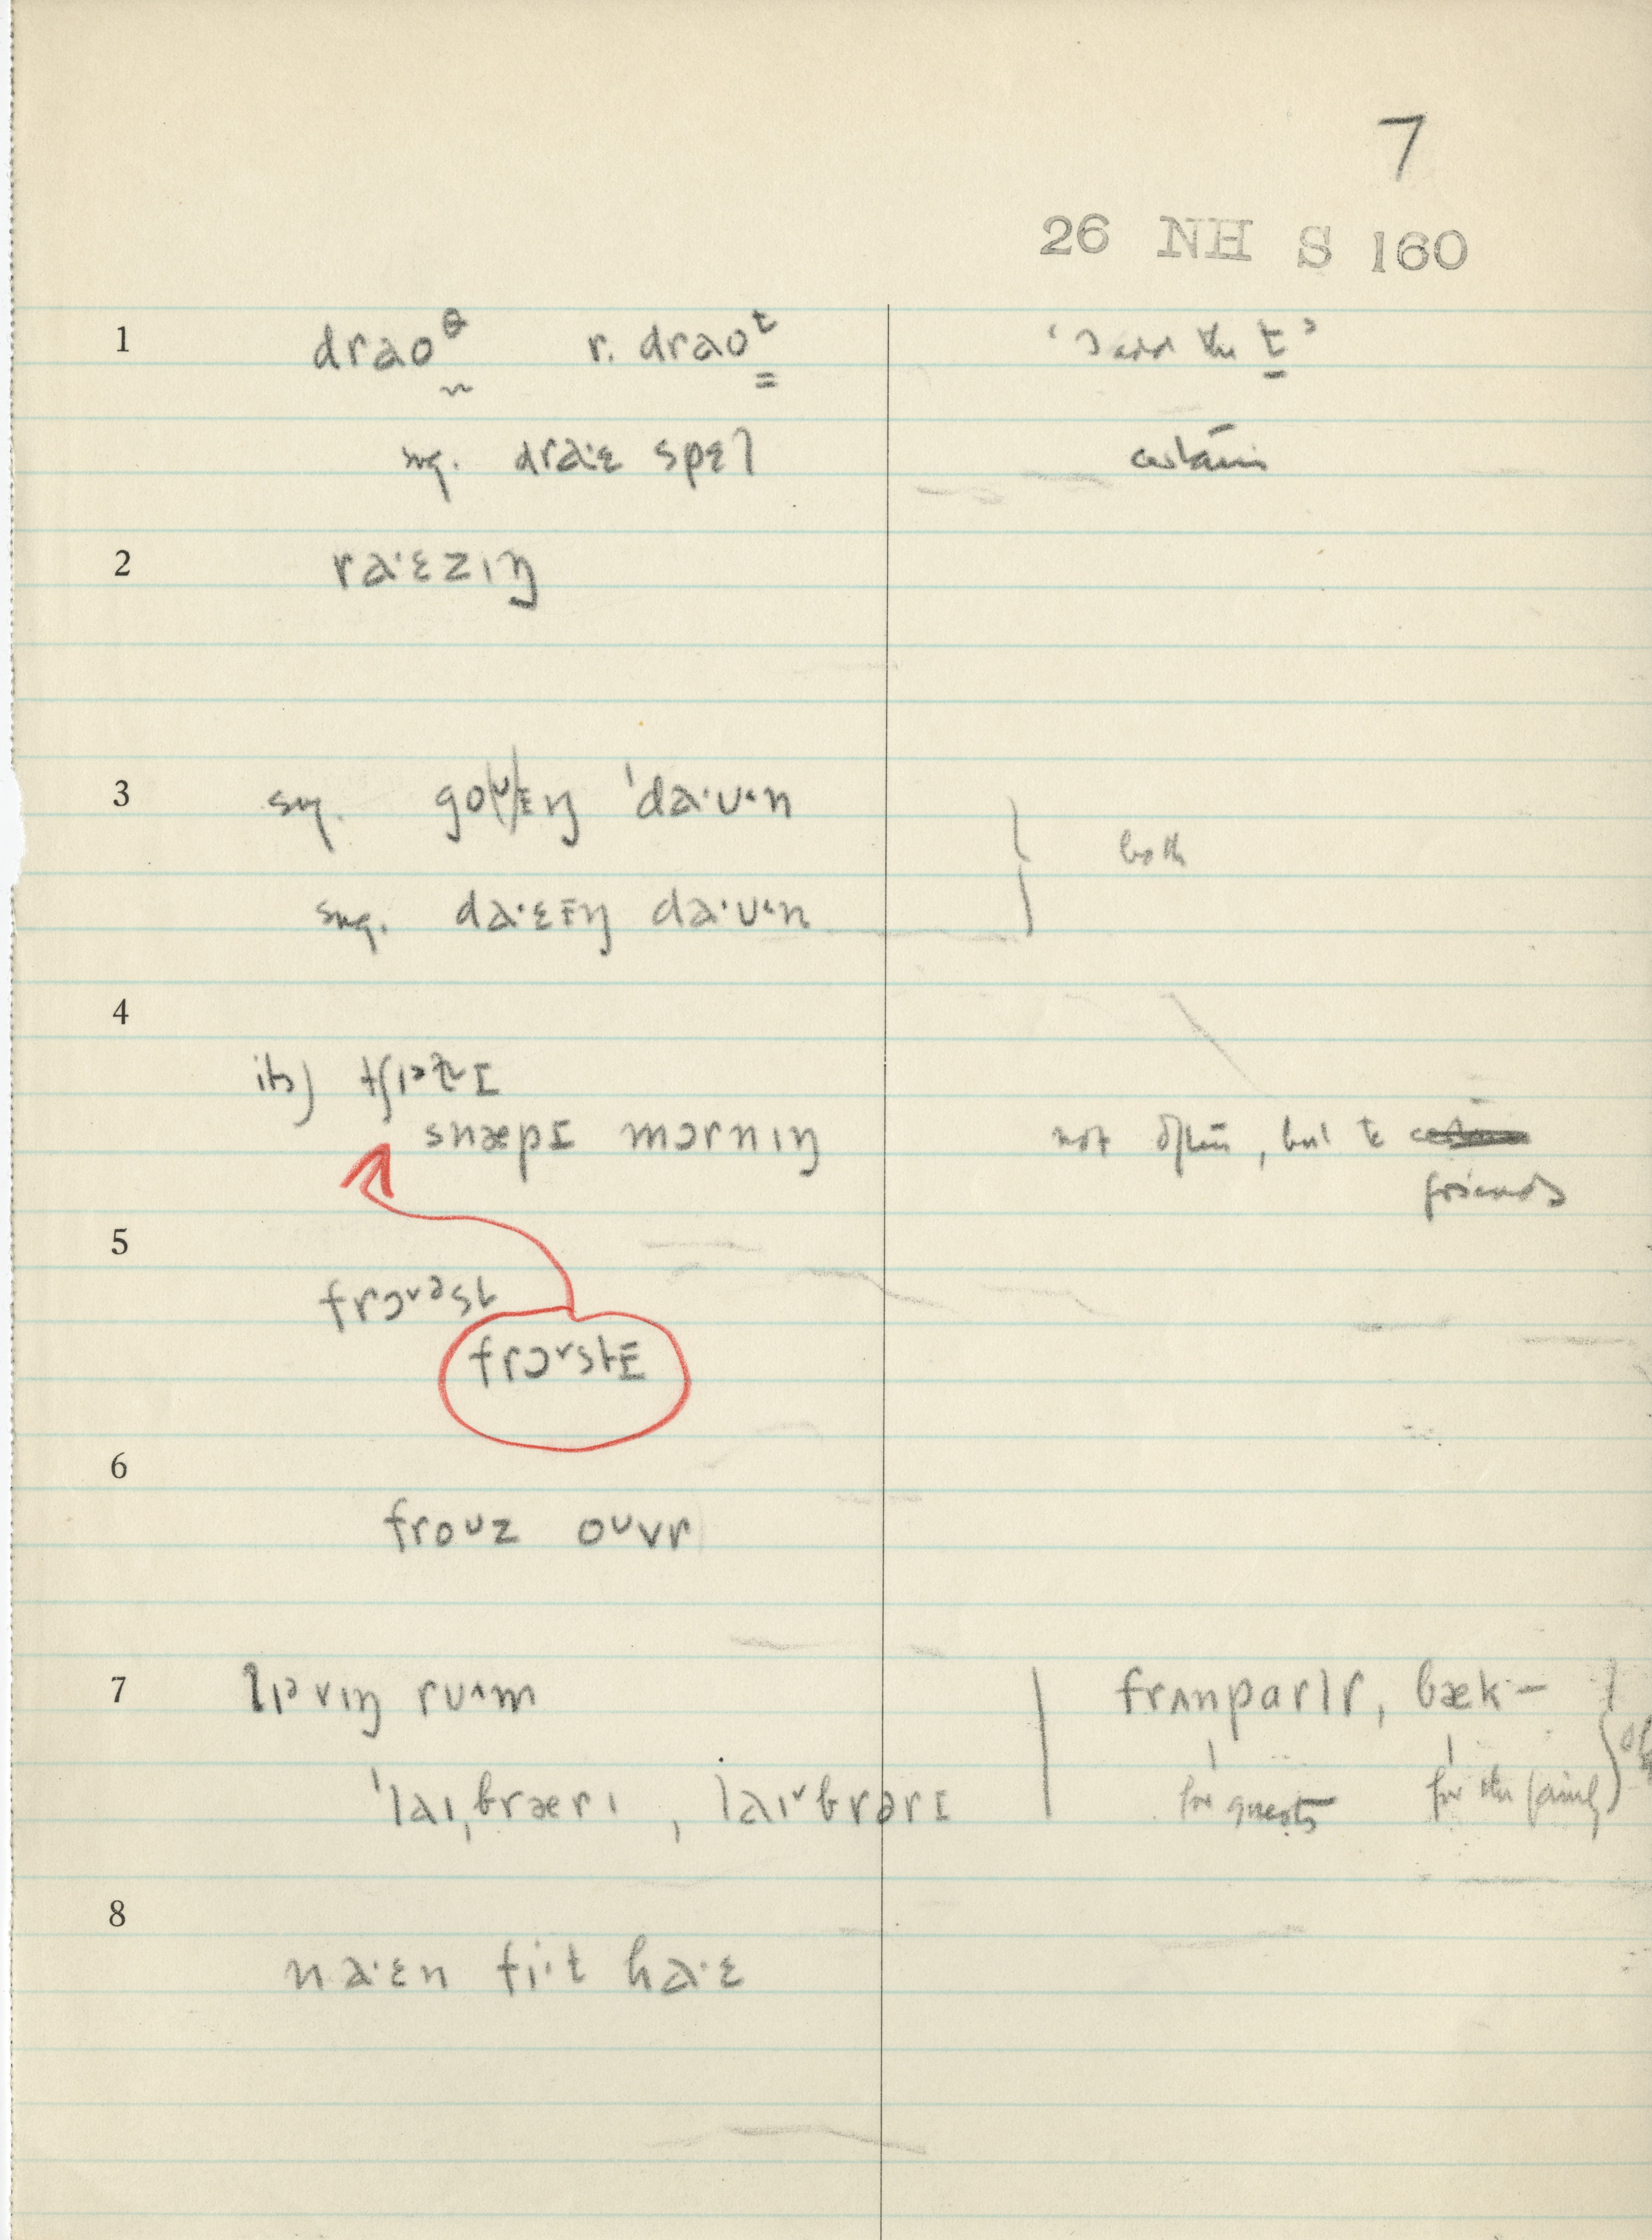 7
26 NH S 160
1 draoᶿ r. draoᵗ 't'
sug. dra·ɛ spɛl certain
2 ra·ɛzɪŋ
3 sug. go(ᶷ)ɪŋ 'da·ᴜ·n
both
sug. da·ɛɪŋ da·ᴜ·n
4
its) tʃɪᵊt̬ɪ
snæpɪ mɔrnɪŋ not often, but to
friends
5
frɔᵛəst
frɔᵛstɪ
6
froᴜz oᴜvr
7 lɪᵊvɪŋ rᴜ^m frʌnparlr, bæk–
'laɪˌbrærɪ , laɪᵛbrərɪ for guests for the family
8
na·ɛn fi·t ha·ɛ